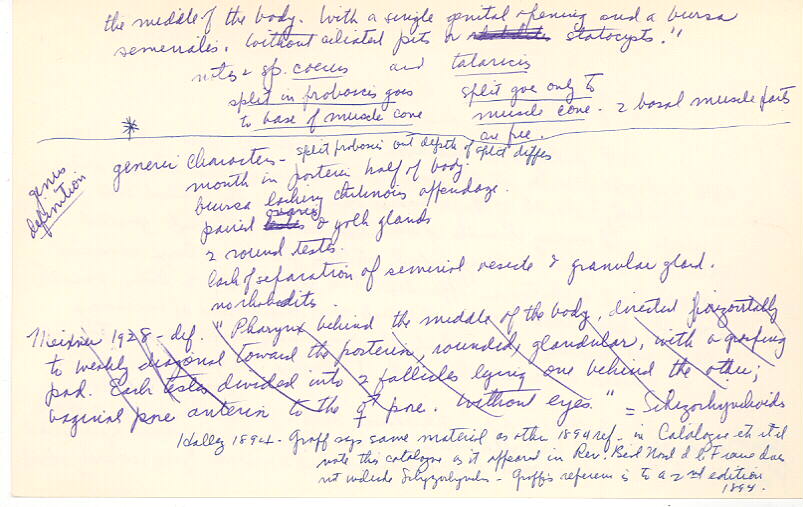 the middle of the body. With a single genital opening and a bursa
seminalis. Without ciliated pits or statocysts."
notes 2 sp. coecus and tataricus
split in proboscis goes split goe only to
to base of muscle cone muscle cone - 2 basal muscle parts
are free.
*
genus
definition
generic characters - split proboscis but depth of split differs
mouth in posterior half of body.
bursa lacking chitinous appendage.
paired ovaries & yolk glands
2 round testes.
lack of separation of seminal vesicle & granular gland.
no rhabdites.
Meixner 1928 - def. "Pharynx behind the middle of the body, directed horizontally
to weakly diagonal toward the posterior, rounded, glandular, with a grasping
pad. Each testes divided into 2 follicles lying one behind the other;
vaginal pore anterior to the ⚥ pore. Without eyes." = Schizorhynchoids
Hallez 1894 - Graff says same material as other 1894 ref - in Catalogue etc
note this catalogue as it appeared in Rev. Biol Nord d la France does
not include Schyzorhynchus - Graff's reference is to a 2nd edition
1894.